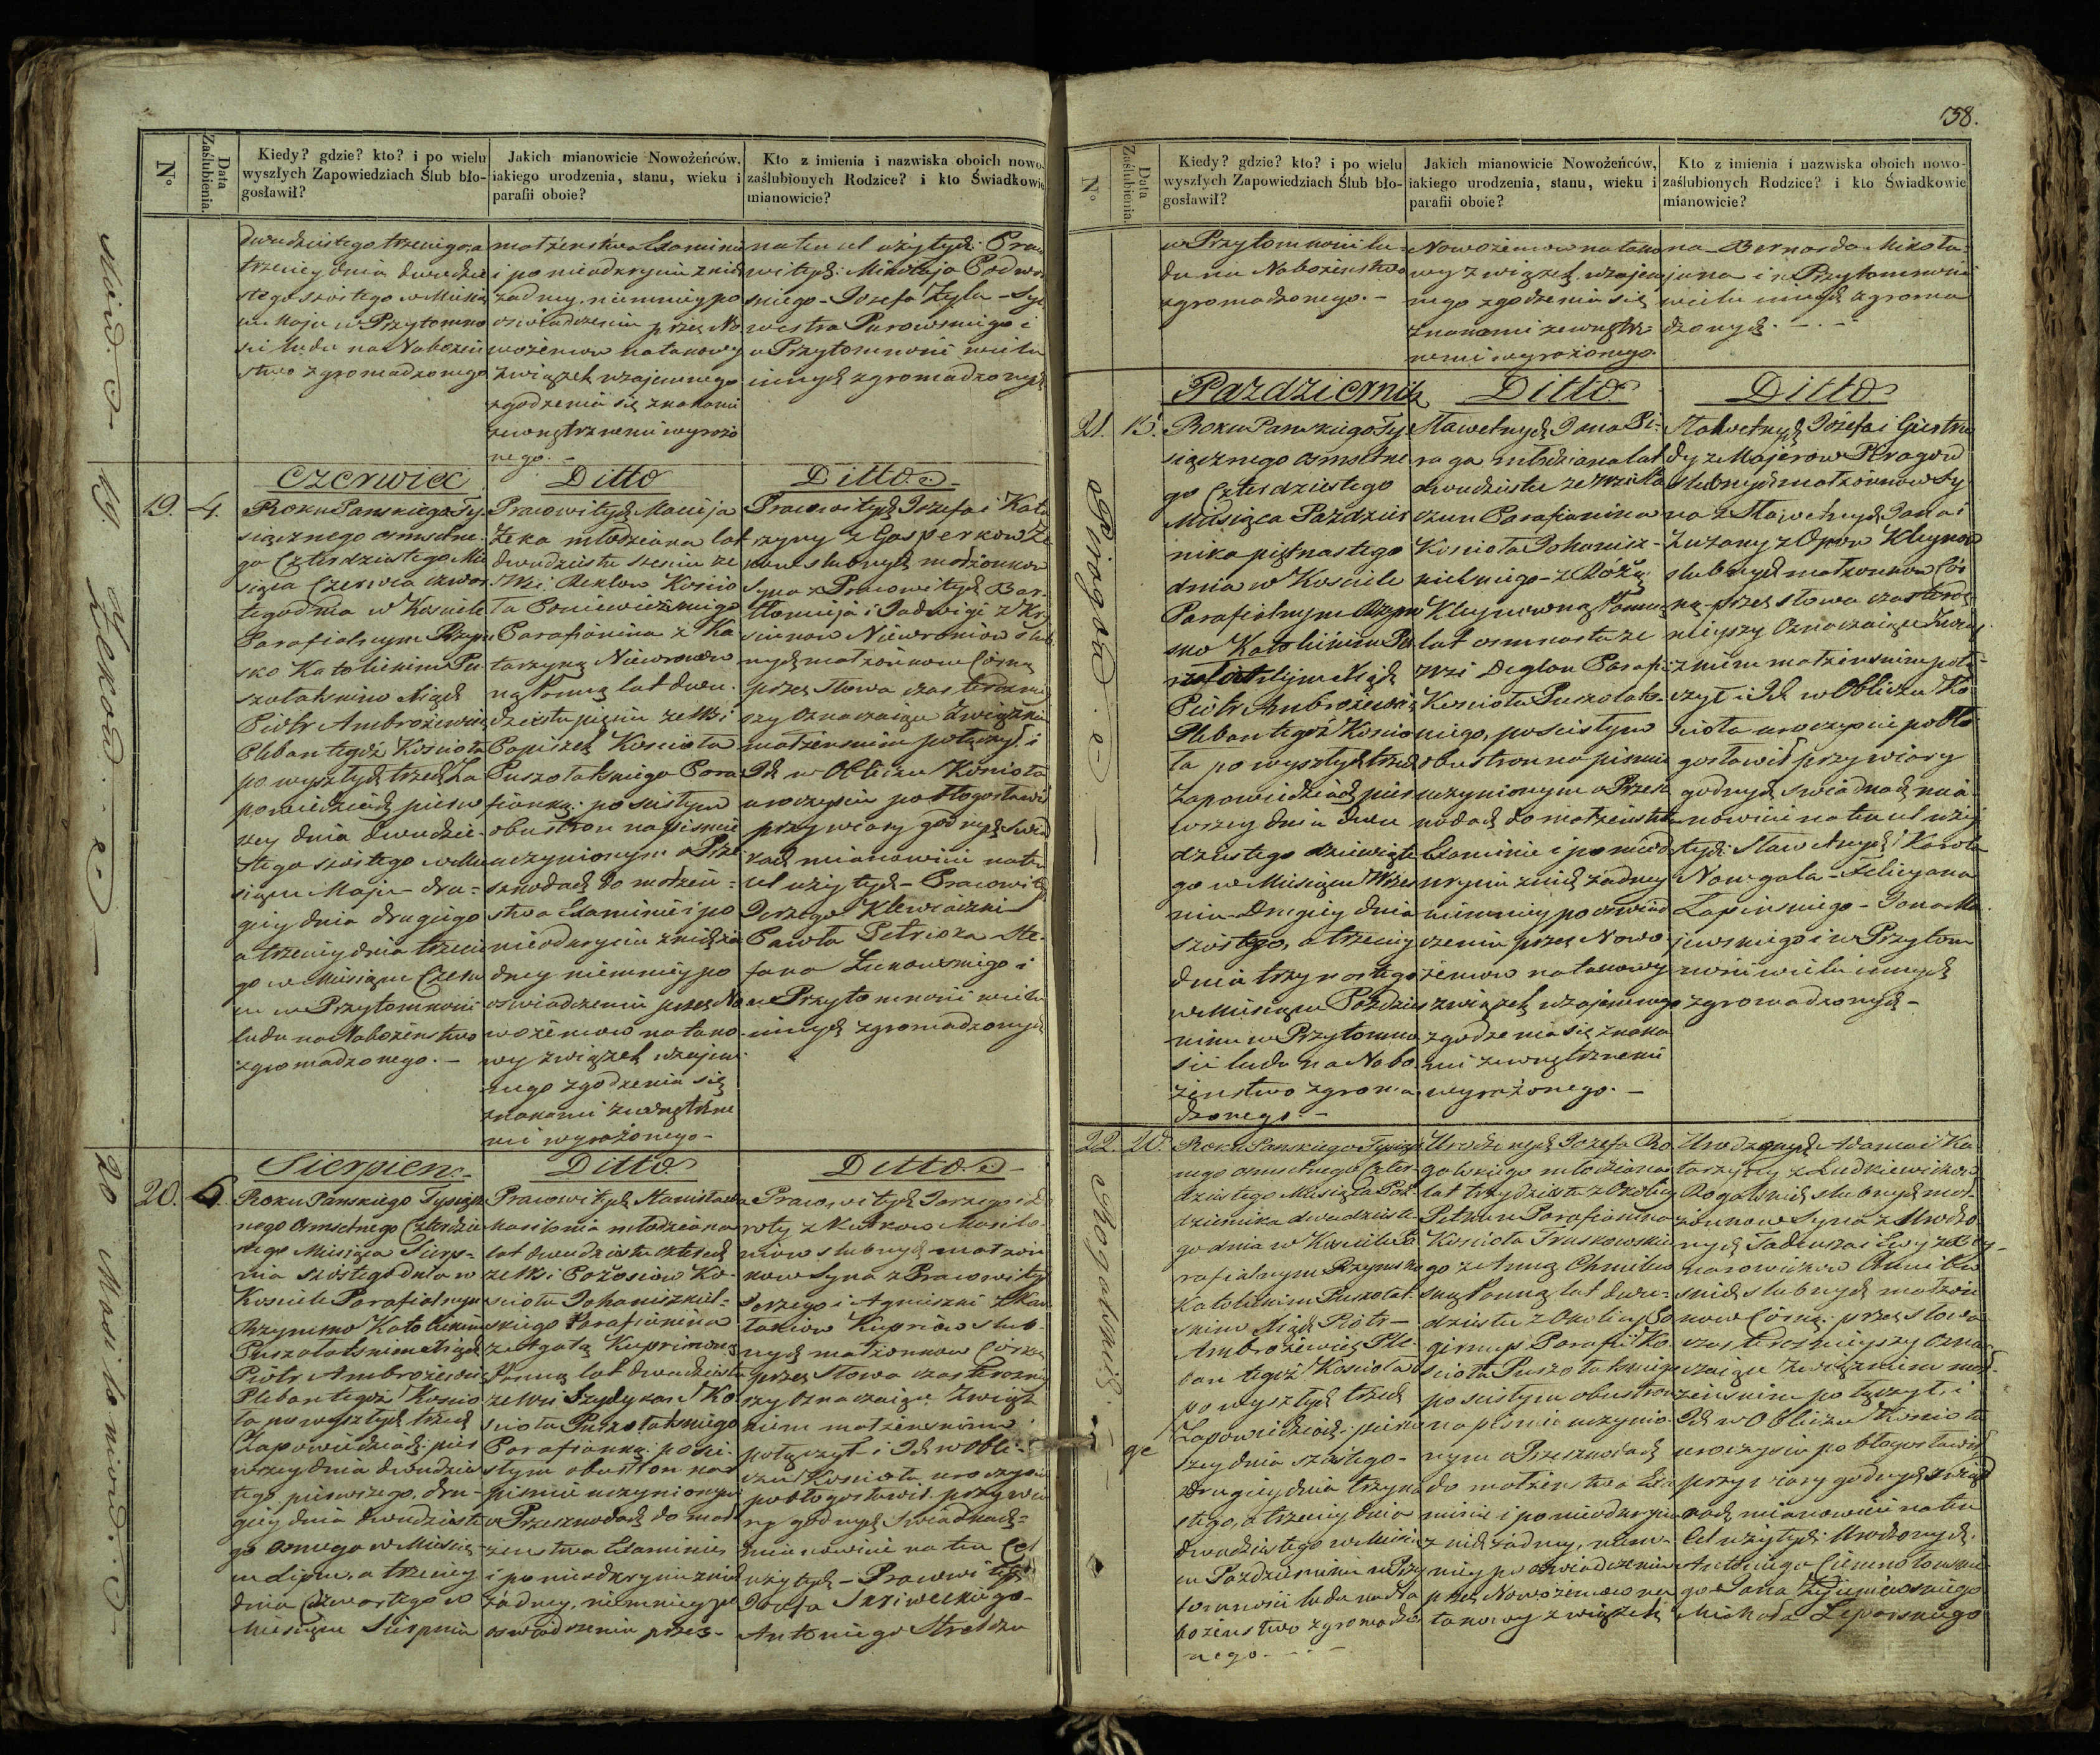 N°
Data Zaślubienia.
Kiedy? gdzie? kto? i po wielu
wyszłych Zapowiedziach Ślub bło-
gosławił?
Jakich mianowicie Nowożeńców,
iakiego urodzenia, stanu, wieku i
parafii oboie?
Kto z imienia i nazwiska oboich nowo-
zaślubionych Rodzice? i kto Świadkowie
mianowicie?
dwudziestego trzeciego, a
trzeciey dnia dwudzie
stego szóstego w Miesią
cu Maju w Przytomno
ści ludu na Nabożeń
stwo zgromadzonego
małżeństwa Examinie
i po nieodkryciu z nich
żadney, niemniey po
oświadczeniu przez No
wożeńcow na takowy
związek wzajemnego
zgodzenia się znakami
zewnętrznemi wyrażo
nego. -
na ten cel użytych: Praco
witych: Mikołaja Podwi
skiego - Jozefa Zyla - Syl
westra Purowskiego i
w Przytomności wielu
innych zgromadzonych
Czerwiec
Ditto
Ditto
19.
4.
Roku Pańskiego Ty-
siącznego osmsetne-
go Czterdziestego Mie
siąca Czerwca czwar
tego dnia w Kościele
Parafialnym Rzym
sko Katolickim Pu
szołatskim Xiądz
Piotr Ambrożewicz
Pleban tegoż Kościoła
po wyszłych trzech Za
powiedziach, pierw
szey dnia dwudzie-
stego szóstego w Mie
siącu Maju - dru=
giey dnia drugiego
a trzeciey dnia trzecie
go w Miesiącu Czerw
cu w Przytomności
ludu na Nabożeństwo
zgromadzonego. -
Pracowitych Macieja
Żeka młodziana lat
dwudziestu sześciu ze
Wsi Rekłow Kościo
ła Poniewiezskiego
Parafianina z Ka
tarzyną Niewronow
ną Panną lat dwu-
dziestu pięciu ze Wsi
Papiszek Kościoła
Puszołatskiego Para
fianką: po ścisłym
obustron na piśmie
uczynionym o Prze-
szkodach do małżeń=
stwa Examinie i po
nieodkryciu z nich ża
dney niemniey po
oświadczeniu przez No
wożeńcow na tako-
wy związek wzajem-
nego zgodzenia się
znakami zewnętrzne
mi wyrażonego -
Pracowitych Jozefa i Kata
rzyny z Gasperkow Że
kow ślubnych małżonkow
Syna z Pracowitych Bar-
tłomieja i Jadwigi z Krz
ściunow Niewroniow ślub
nych małżonkow Córką
przez słowa czasteraźniey
szy oznaczaiące Związkiem
małżeńskim połączył i
Ich w Obliczu Kościoła
uroczyście pobłogosławił
przy wiary godnych Świad
kach mianowicie na ten
cel użytych - Pracowitych
Jerzego Klewiaczki
Pawła Petricza - Ste-
fana Łukowskiego i
w Przytomności wielu
innych zgromadzonych
Sierpień
Ditto
Ditto
20.
6.
Roku Pańskiego Tysiącz
nego osmsetnego Czterdzie
stego Miesiąca Sierp=
nia szóstego dnia w
Kościele Parafialnym
Rzymsko Katolickim
Puszołatskim Xiądz
Piotr Ambrożewicz
Pleban tegoż Kościo
ła po wyszłych trzech
Zapowiedziach: pier
wszey dnia dwudzies
tego pierwszego, dru-
giey dnia dwudzieste
go osmego w Miesią-
cu Lipcu, a trzeciey
dnia Czwartego w
Miesiącu Sierpniu
Pracowitych Stanisława
Masilonia młodziana
lat dwudziestu czterech
ze Wsi Pożosiow Ko-
ścioła Johaniszkiel=
skiego Parafianina
z Agatą Kuprinowną
Panną lat dwudziestu
ze Wsi Szydykan Ko-
ścioła Puszołatskiego
Parafianką: po ści-
słym obustron na
piśmie uczynionym
o Przeszkodach do mał
żeństwa Examinie
i po nieodkryciu z nich
żadney, niemniey po
oświadczeniu przez
Pracowitych Jerzego i Do
roty z Kutkow Masilo-
niow ślubnych małżon
kow Syna z Pracowitych
Jerzego i Agnieszki z Kau
łakiow Kupriow ślub-
nych małżonkow Córką
przez słowa czasteraźniey
szy oznaczaiące Związ
kiem małżeńskim
połączył i Ich w Obli-
czu Kościoła uroczyście
pobłogosławił przy wia
ry godnych Świadkach=
mianowicie na ten Cel
użytych - Pracowitych
Jozefa Skriweckiego -
Antoniego Strełczu
Maiło
19.
Żekow. e
20
Masiloniow. e
58.
N°
Data Zaślubienia.
Kiedy? gdzie? kto? i po wielu
wyszłych Zapowiedziach Ślub bło-
gosławił?
Jakich mianowicie Nowożeńców,
iakiego urodzenia, stanu, wieku i
parafii oboie?
Kto z imienia i nazwiska oboich nowo-
zaślubionych Rodzice? i kto Świadkowie
mianowicie?
w Przytomności lu-
du na Nabożeństwo
zgromadzonego. -
Nowożeńcow na tako
wy związek wzajem
nego zgodzenia się
znakami zewnętrz-
nemi wyrażonego.
na - Bernarda Mikoła
jana i w Przytomności
wielu innych zgroma
dzonych. - . -
Pazdziernik
Ditto
Ditto
21.
15.
Roku Pańskiego Ty-
siącznego osmsetne
go Czterdziestego
Miesiąca Pazdzier
nika piętnastego
dnia w Kościele
Parafialnym Rzym
sko Katolickim Pu
szołatskim Xiądz
Piotr Ambrożewicz
Pleban tegoż Kościo
ła po wyszłych trzech
Zapowiedziach pier
wszey dnia dwu
dziestego dziewiąte
go w Miesiącu Wrześ
niu - Drugiey dnia
szóstego, a trzeciey
dnia trzynastego
w Miesiącu Pazdzier
niku w Przytomno
ści ludu na Nabo
żeństwo zgroma
dzonego. -
Sławetnych Jana Pi-
raga młodziana lat
dwudziestu ze Wsi
Parafianina
Kościoła Johanisz-
kielskiego - z Różą
Kleynowną Panną
lat osmnastu ze
Wsi Deglan Parafii
Kościoła Puszołats-
kiego, po ścisłym
obustron na piśmie
uczynionym o Przesz
kodach do małżeństwa
Examinie i po nieod
kryciu z nich żadney
niemniey po oświad
czeniu przez Nowo-
żeńcow na takowy
związek wzajemnego
zgodzenia się znaka
mi zewnętrznemi
wyrażonego. -
Sławetnych Józefa i Giertru
dy z Majerow Piragow
ślubnych małżonkow Sy
na z Sławetnych Jana i
Zuzany z Kleynow
ślubnych małżonkow Cór
ką - przez słowa czasteraź
nieyszy oznaczaiące Związ
kiem małżeńskim połą-
czył i Ich w Obliczu Ko
ścioła uroczyście pobło
gosławił przy wiary
godnych świadkach mia-
nowicie na ten cel użyt
tych: Sławetnych: Karola
Nowgala - Felicyana
Łapińskiego - Jana Ma
jewskiego i w Przytom
ności wielu innych
zgromadzonych -
22.
20.
Roku Pańskiego Tysiącz
nego osmsetnego Czter-
dziestego Miesiąca Paź-
dziernika dwudzieste-
go dnia w Kościele Pa
rafialnym Rzymsko
Katolickim Puszołat-
skim Xiądz Piotr -
Ambrożewicz Ple
ban tegoż Kościoła
po wyszłych trzech
Zapowiedziach: pierw
szey dnia szóstego -
Drugiey dnia trzyna
stego, a trzeciey dnia
dwudziestego w Miesią
cu Pazdzierniku w Przy
tomności ludu na Na
bożeństwo zgromadzo
nego. - . -
Urodzonych Jozefa Ro
galskiego młodziana
lat trzydziestu z Okolicy
Petkun Parafianina
Kościoła Truskowskie
go z Anną Chmilew
ską Panną lat dwu-
dziestu z Okolicy Po
girnup Parafii Ko-
ścioła Puszołatskiego
po ścisłym obustron
na piśmie uczynio-
nym o Przeszkodach
do małżeństwa Exa
minie i po nieodkryciu
z nich żadney, niem-
niey po oświadczeniu
przez Nowożeńcow na
takowy związek
Urodzonych Adama i Ka
tarzyny z Ludkiewiczow
Rogalskich ślubnych mał-
żonkow Syna z Urodzo
nych Tadeusza i Ewy z Bey-
narowiczow Chmilew
skich ślubnych małżon
kow Córką: przez słowa
czasteraźnieyszy ozna-
czaiące Związkiem mał-
żeńskim połączył, i
Ich w Obliczu Kościoła
uroczyście pobłogosławił
przy wiary godnych Świad
kach mianowicie na ten
Cel użytych: Urodzonych
Antoniego Ciemnołowskie
go Jana Zygniewskiego
Michała Leparskiego
Piragow. e
Rogalskich